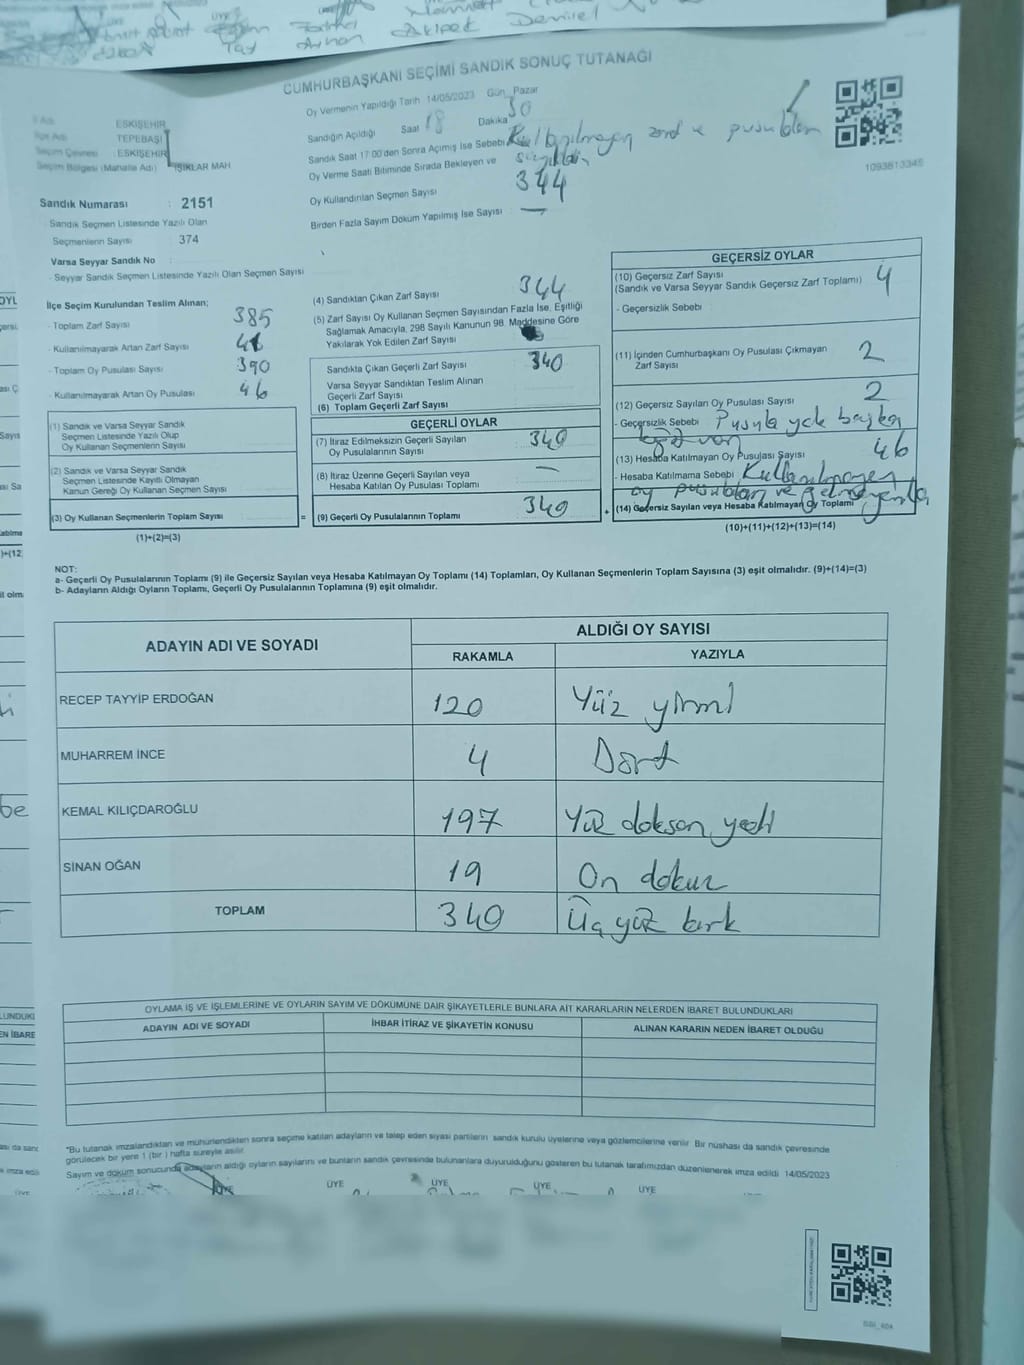 Akpek Demirel
Tay Ayhan
CUMHURBAŞKANI SEÇİMİ SANDIK SONUÇ TUTANAĞI
Oy Vermenin Yapıldığı Tarih 14/05/2023 Gün Pazar
İl Adı ESKİŞEHİR
İlçe Adı TEPEBAŞI
Seçim Çevresi : ESKİŞEHİR
Seçim Bölgesi (Mahalle Adı) IŞIKLAR MAH
Sandık Numarası : 2151
Sandık Seçmen Listesinde Yazılı Olan
Seçmenlerin Sayısı 374
Varsa Seyyar Sandık No
- Seyyar Sandık Seçmen Listesinde Yazılı Olan Seçmen Sayısı
Sandığın Açıldığı Saat 18 Dakika 30
Sandık Saat 17:00'den Sonra Açılmış İse Sebebi Kullanılmayan zarf ve pusulaları
Oy Verme Saati Bitiminde Sırada Bekleyen ve
Oy Kullandırılan Seçmen Sayısı 344
Birden Fazla Sayım Döküm Yapılmış İse Sayısı —
1093813345
İlçe Seçim Kurulundan Teslim Alınan;
- Toplam Zarf Sayısı 385
- Kullanılmayarak Artan Zarf Sayısı 41
- Toplam Oy Pusulası Sayısı 390
- Kullanılmayarak Artan Oy Pusulası 46
(1) Sandık ve Varsa Seyyar Sandık
Seçmen Listesinde Yazılı Olup
Oy Kullanan Seçmenlerin Sayısı
(2) Sandık ve Varsa Seyyar Sandık
Seçmen Listesinde Kayıtlı Olmayan
Kanun Gereği Oy Kullanan Seçmen Sayısı
(3) Oy Kullanan Seçmenlerin Toplam Sayısı =
(1)+(2)=(3)
(4) Sandıktan Çıkan Zarf Sayısı 344
(5) Zarf Sayısı Oy Kullanan Seçmen Sayısından Fazla İse, Eşitliği
Sağlamak Amacıyla, 298 Sayılı Kanunun 98. Maddesine Göre
Yakılarak Yok Edilen Zarf Sayısı
Sandıkta Çıkan Geçerli Zarf Sayısı 340
Varsa Seyyar Sandıktan Teslim Alınan
Geçerli Zarf Sayısı
(6) Toplam Geçerli Zarf Sayısı
GEÇERLİ OYLAR
(7) İtiraz Edilmeksizin Geçerli Sayılan
Oy Pusulalarının Sayısı 340
(8) İtiraz Üzerine Geçerli Sayılan veya
Hesaba Katılan Oy Pusulası Toplamı —
(9) Geçerli Oy Pusulalarının Toplamı 340 +
GEÇERSİZ OYLAR
(10) Geçersiz Zarf Sayısı
(Sandık ve Varsa Seyyar Sandık Geçersiz Zarf Toplamı) 4
- Geçersizlik Sebebi :
(11) İçinden Cumhurbaşkanı Oy Pusulası Çıkmayan
Zarf Sayısı 2
(12) Geçersiz Sayılan Oy Pusulası Sayısı 2
- Geçersizlik Sebebi : Pusula yok başka
var
(13) Hesaba Katılmayan Oy Pusulası Sayısı 46
- Hesaba Katılmama Sebebi : Kullanılmayan
oy pusulaları ve gelmeyenler
(14) Geçersiz Sayılan veya Hesaba Katılmayan Oy Toplamı
(10)+(11)+(12)+(13)=(14)
NOT:
a- Geçerli Oy Pusulalarının Toplamı (9) ile Geçersiz Sayılan veya Hesaba Katılmayan Oy Toplamı (14) Toplamları, Oy Kullanan Seçmenlerin Toplam Sayısına (3) eşit olmalıdır. (9)+(14)=(3)
b- Adayların Aldığı Oyların Toplamı, Geçerli Oy Pusulalarının Toplamına (9) eşit olmalıdır.
ADAYIN ADI VE SOYADI
ALDIĞI OY SAYISI
RAKAMLA YAZIYLA
RECEP TAYYİP ERDOĞAN 120 Yüz yirmi
MUHARREM İNCE 4 Dört
KEMAL KILIÇDAROĞLU 197 Yüz doksan yedi
SİNAN OĞAN 19 On dokuz
TOPLAM 340 Üç yüz kırk
OYLAMA İŞ VE İŞLEMLERİNE VE OYLARIN SAYIM VE DÖKÜMÜNE DAİR ŞİKAYETLERLE BUNLARA AİT KARARLARIN NELERDEN İBARET BULUNDUKLARI
ADAYIN ADI VE SOYADI
İHBAR İTİRAZ VE ŞİKAYETİN KONUSU
ALINAN KARARIN NEDEN İBARET OLDUĞU
*Bu tutanak imzalandıktan ve mühürlendikten sonra seçime katılan adayların ve talep eden siyasi partilerin sandık kurulu üyelerine veya gözlemcilerine verilir. Bir nüshası da sandık çevresinde
görülecek bir yere 1 (bir ) hafta süreyle asılır.
Sayım ve döküm sonucunda adayların aldığı oyların sayılarını ve bunların sandık çevresinde bulunanlara duyurulduğunu gösteren bu tutanak tarafımızdan düzenlenerek imza edildi. 14/05/2023
ÜYE ÜYE ÜYE ÜYE ÜYE